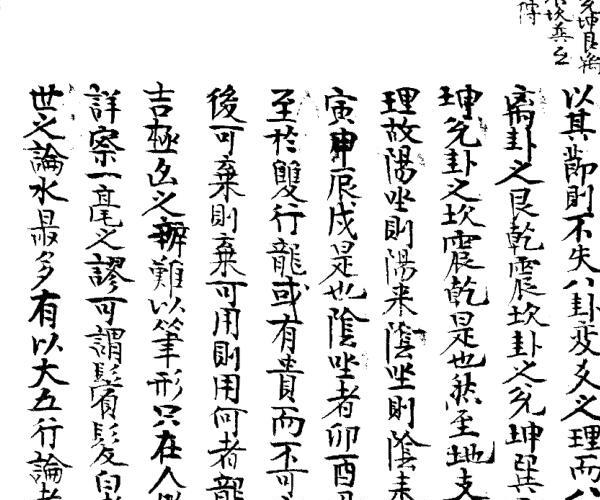 兌坤艮
坎兵之
傳
以其節則不失八卦变爻之理而八
离卦之艮乾震坎卦之兌坤巽
坤兌卦之坎震乾是也然至地支
理故陽坐則陽来陰坐則陰来
寅申辰戌是也陰坐者卯酉
至於雙行龍或有貴而不可
後可棄則棄可用則用何者龍
吉極凶之辨難以筆形只在人
詳察一毫之謬可謂鬂髮白
世之論水最多有以大五行論者